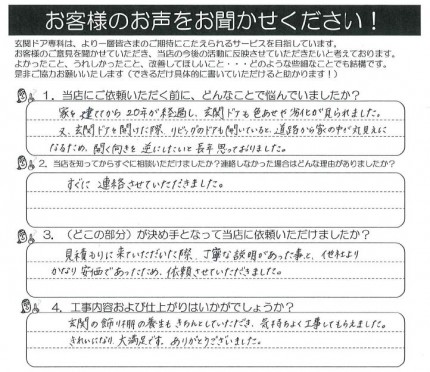 お客様のお声をお聞かせください！
玄関ドア専科は、より一層皆さまのご期待にこたえられるサービスを目指しています。
お客様のご意見を聞かせていただき、当店の今後の活動に反映させていただきたいと考えております。
よかったこと、うれしかったこと、改善してほしいこと・・・どのような些細なことでも結構です。
是非ご協力お願いいたします（できるだけ具体的に書いていただけると助かります！）
1．当店にご依頼いただく前に、どんなことで悩んでいましたか？
家を建ててから20年が経過し、玄関ドアも色あせや劣化が見られました。
又、玄関ドアを開けた際、リビングのドアも開いていると、道路から家の中が丸見えに
なるため、開く向きを逆にしたいと長年思っておりました。
2．当店を知ってからすぐに相談いただけましたか？連絡しなかった場合はどんな理由がありましたか？
すぐに連絡させていただきました。
3．（どこの部分）が決め手となって当店に依頼いただけましたか？
見積もりに来ていただいた際、丁寧な説明があった事と、他社より
かなり安価であったため、依頼させていただきました。
4．工事内容および仕上がりはいかがでしょうか？
玄関の飾り棚の養生もきちんとしていただき、気持ちよく工事してもらえました。
きれいになり、大満足です。ありがとうございました。